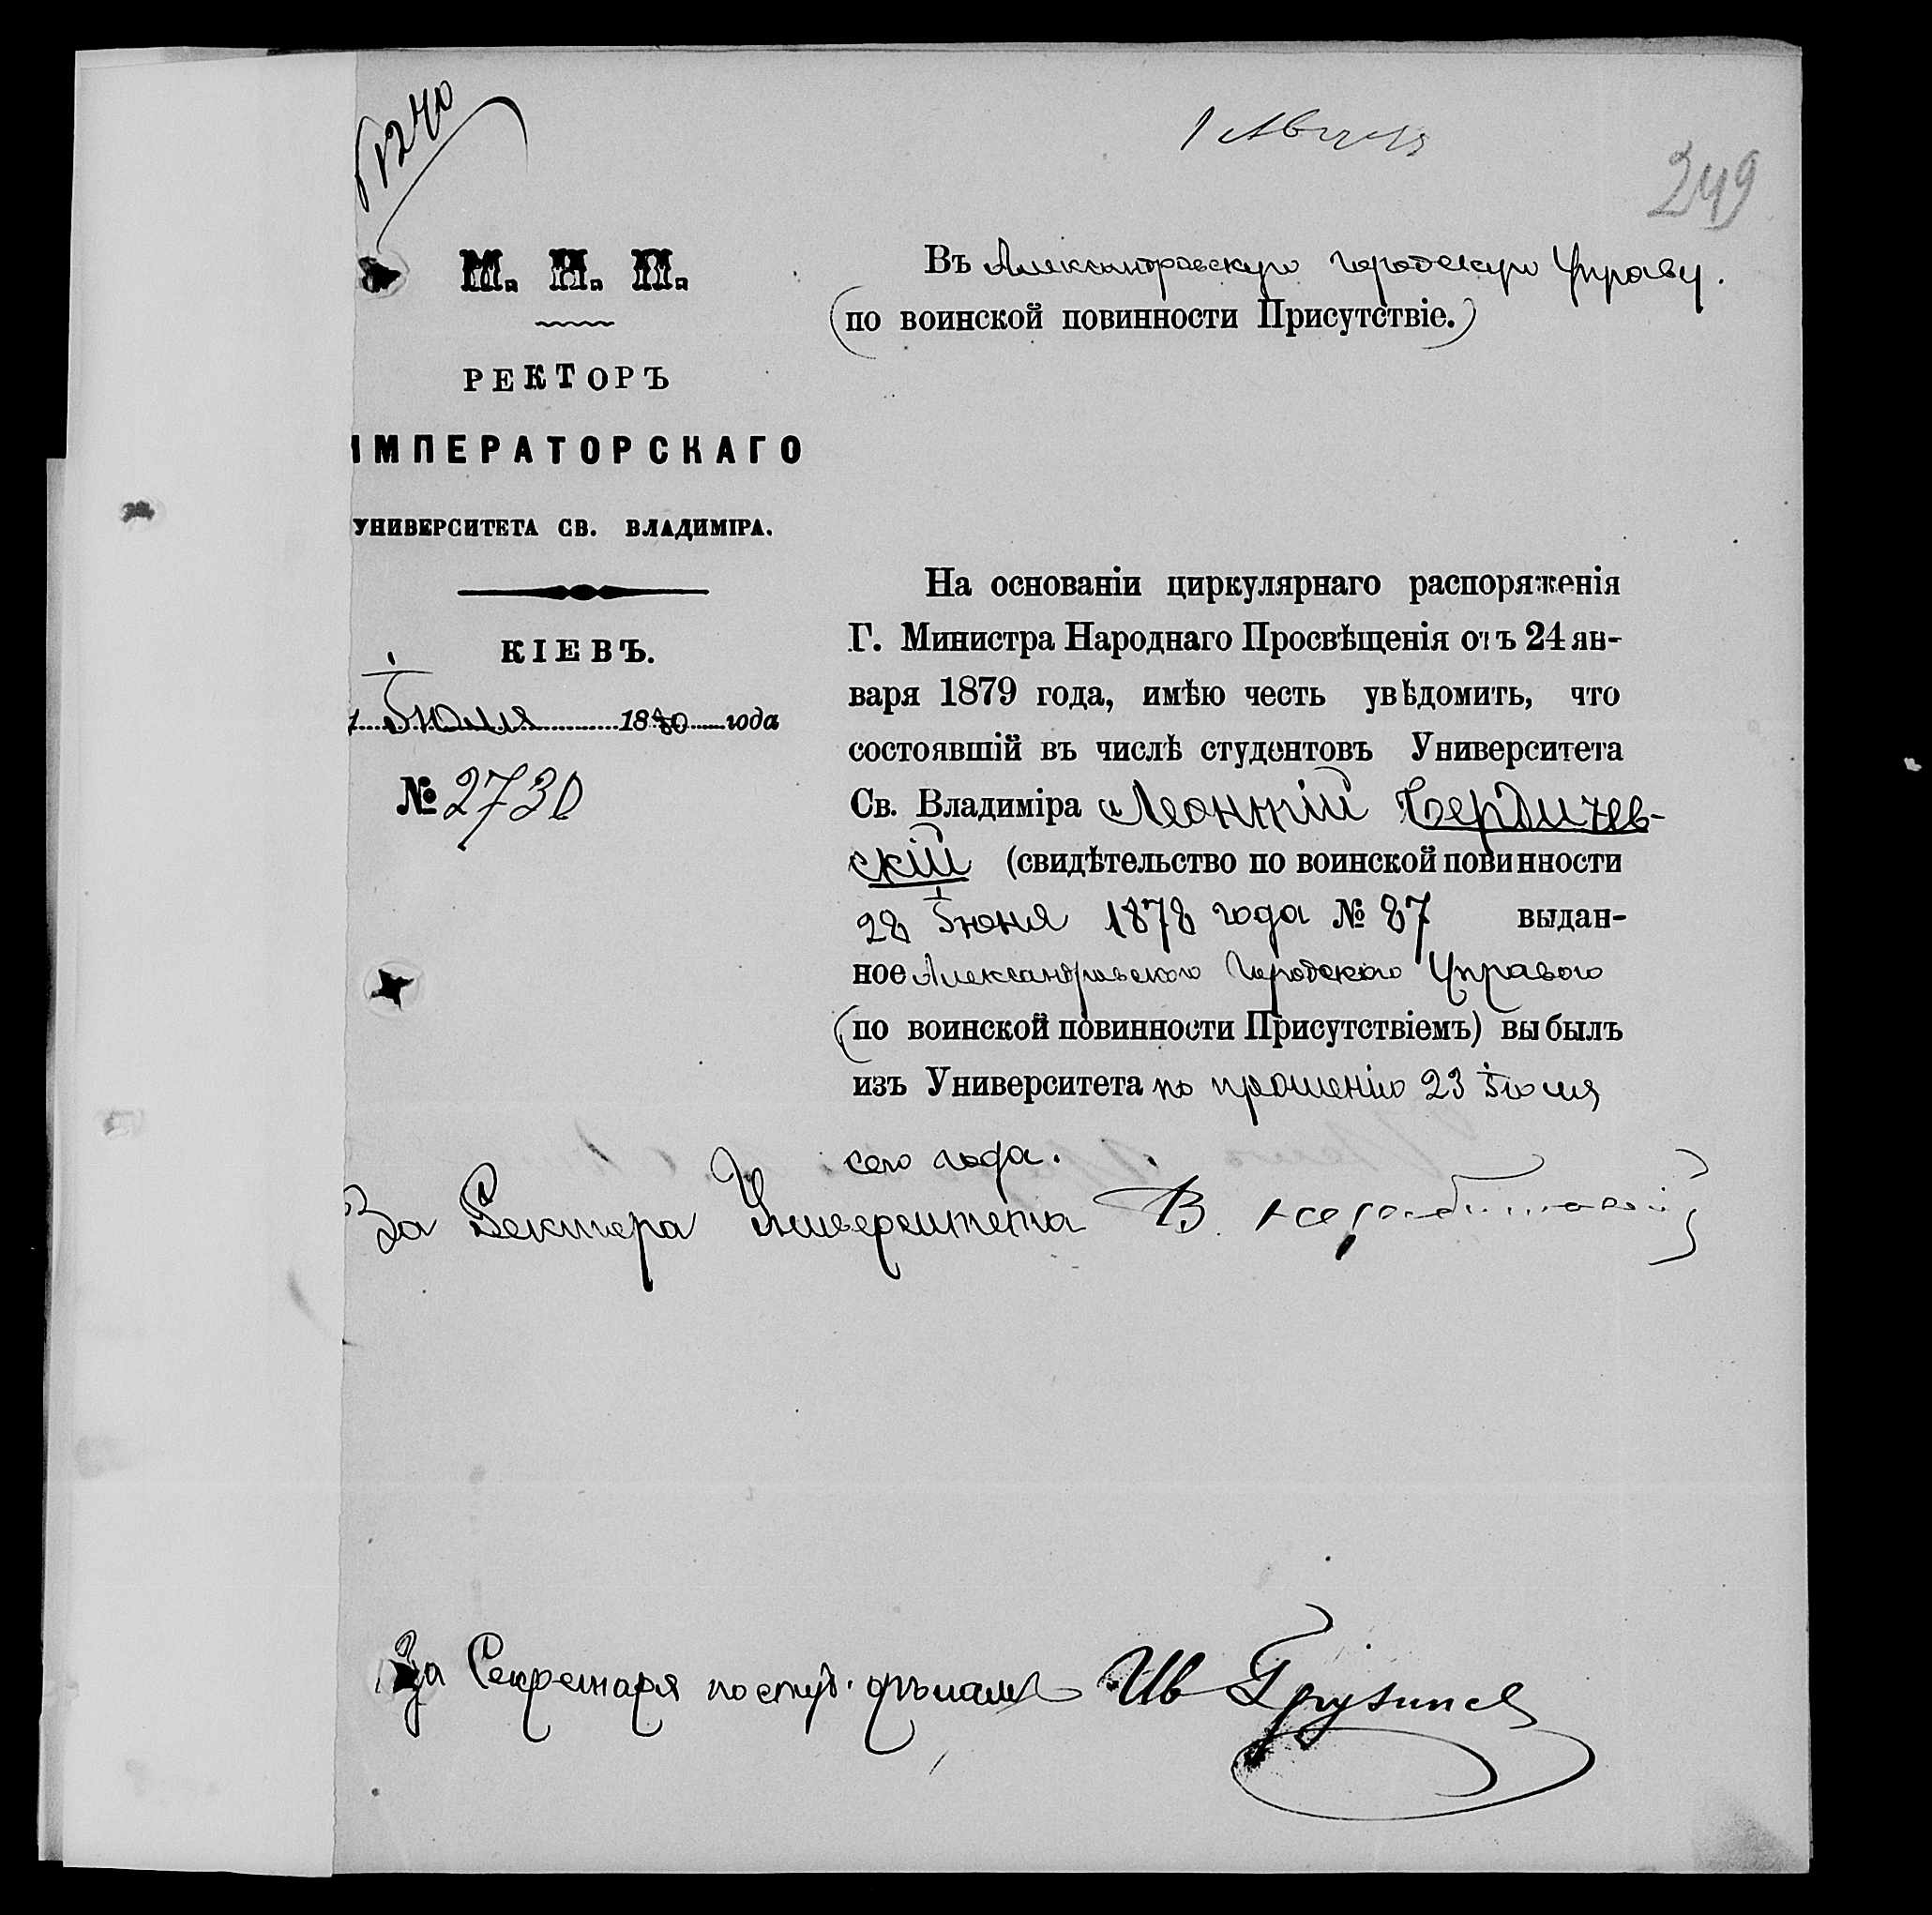 1240
1 Августа
249
М. Н. П.
РЕКТОРЪ
ИМПЕРАТОРСКАГО
УНИВЕРСИТЕТА СВ. ВЛАДИМІРА.
КІЕВЪ.
Іюля 1880 года
№ 2730
Въ Александровскую городскую Управу.
(по воинской повинности Присутствіе.)
На основаніи циркулярнаго распоряженія
Г. Министра Народнаго Просвѣщенія отъ 24 ян-
варя 1879 года, имѣю честь увѣдомить, что
состоявшій въ числѣ студентовъ Университета
Св. Владиміра Леонтій Бердичев-
скій (свидѣтельство по воинской повинности
28 Іюня 1878 года № 87 выдан-
ное Александровскою Городскою Управою
(по воинской повинности Присутствіемъ) выбылъ
изъ Университета по прошенію 23 Іюля
сего года.
За Ректора Университета В.
За Секретаря по студ. дѣламъ Ив Грузинс